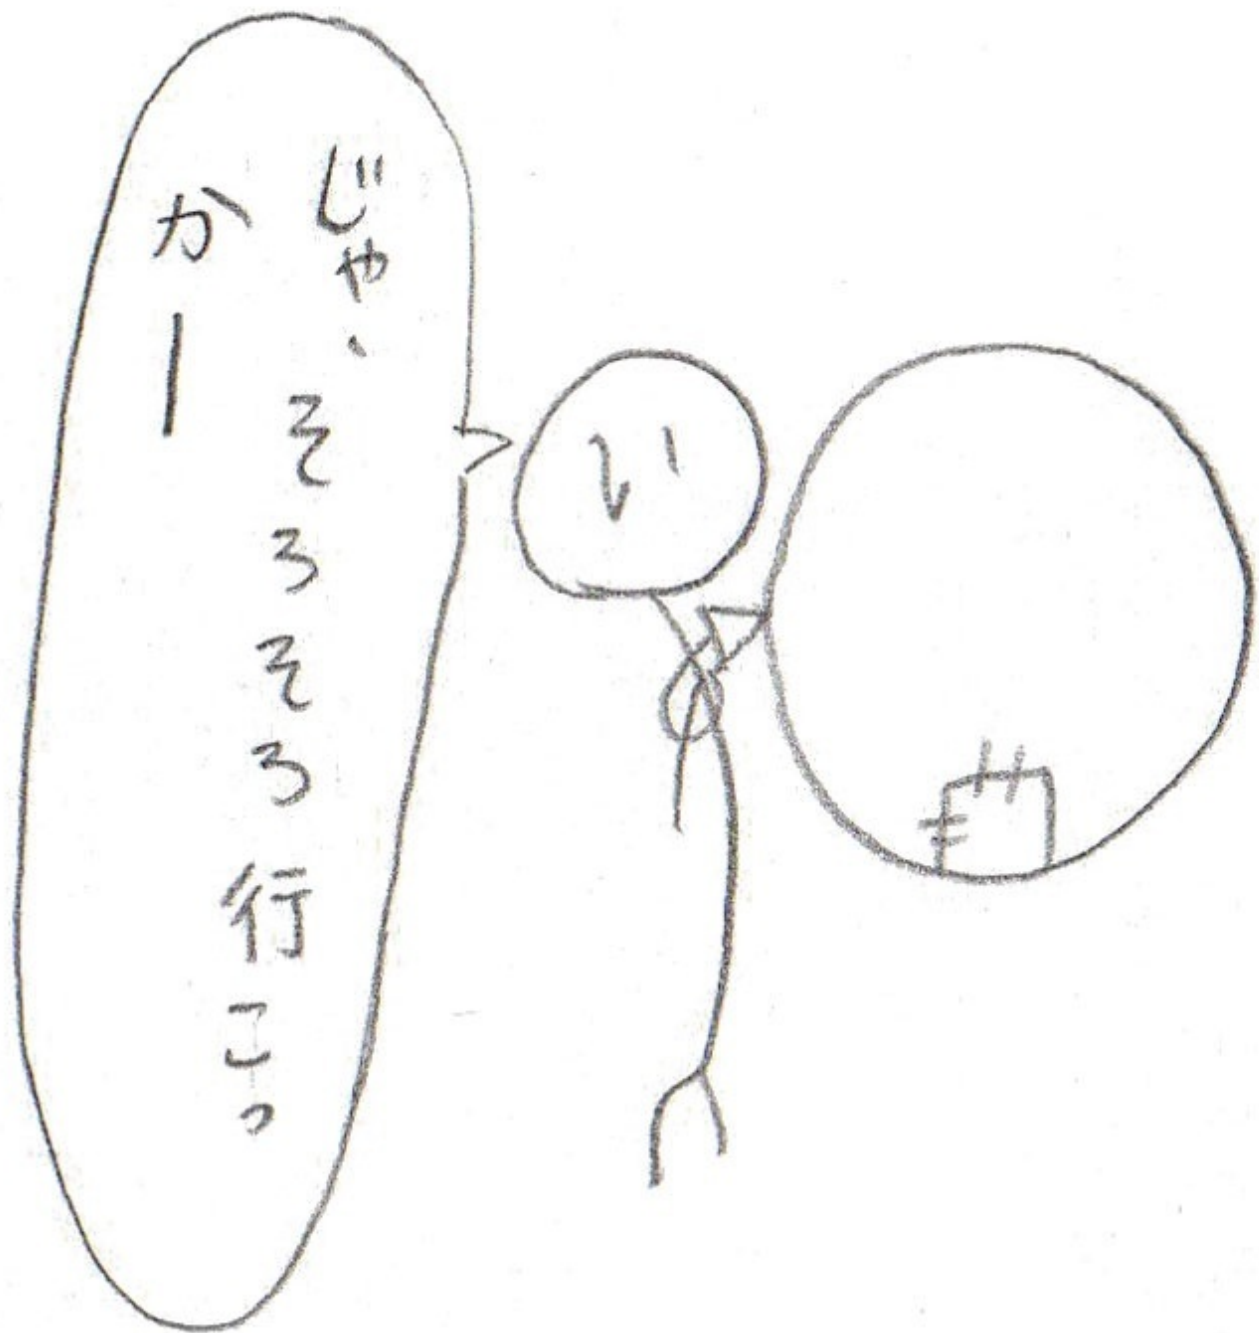 じゃ、そろそろ行こっ
かー
い